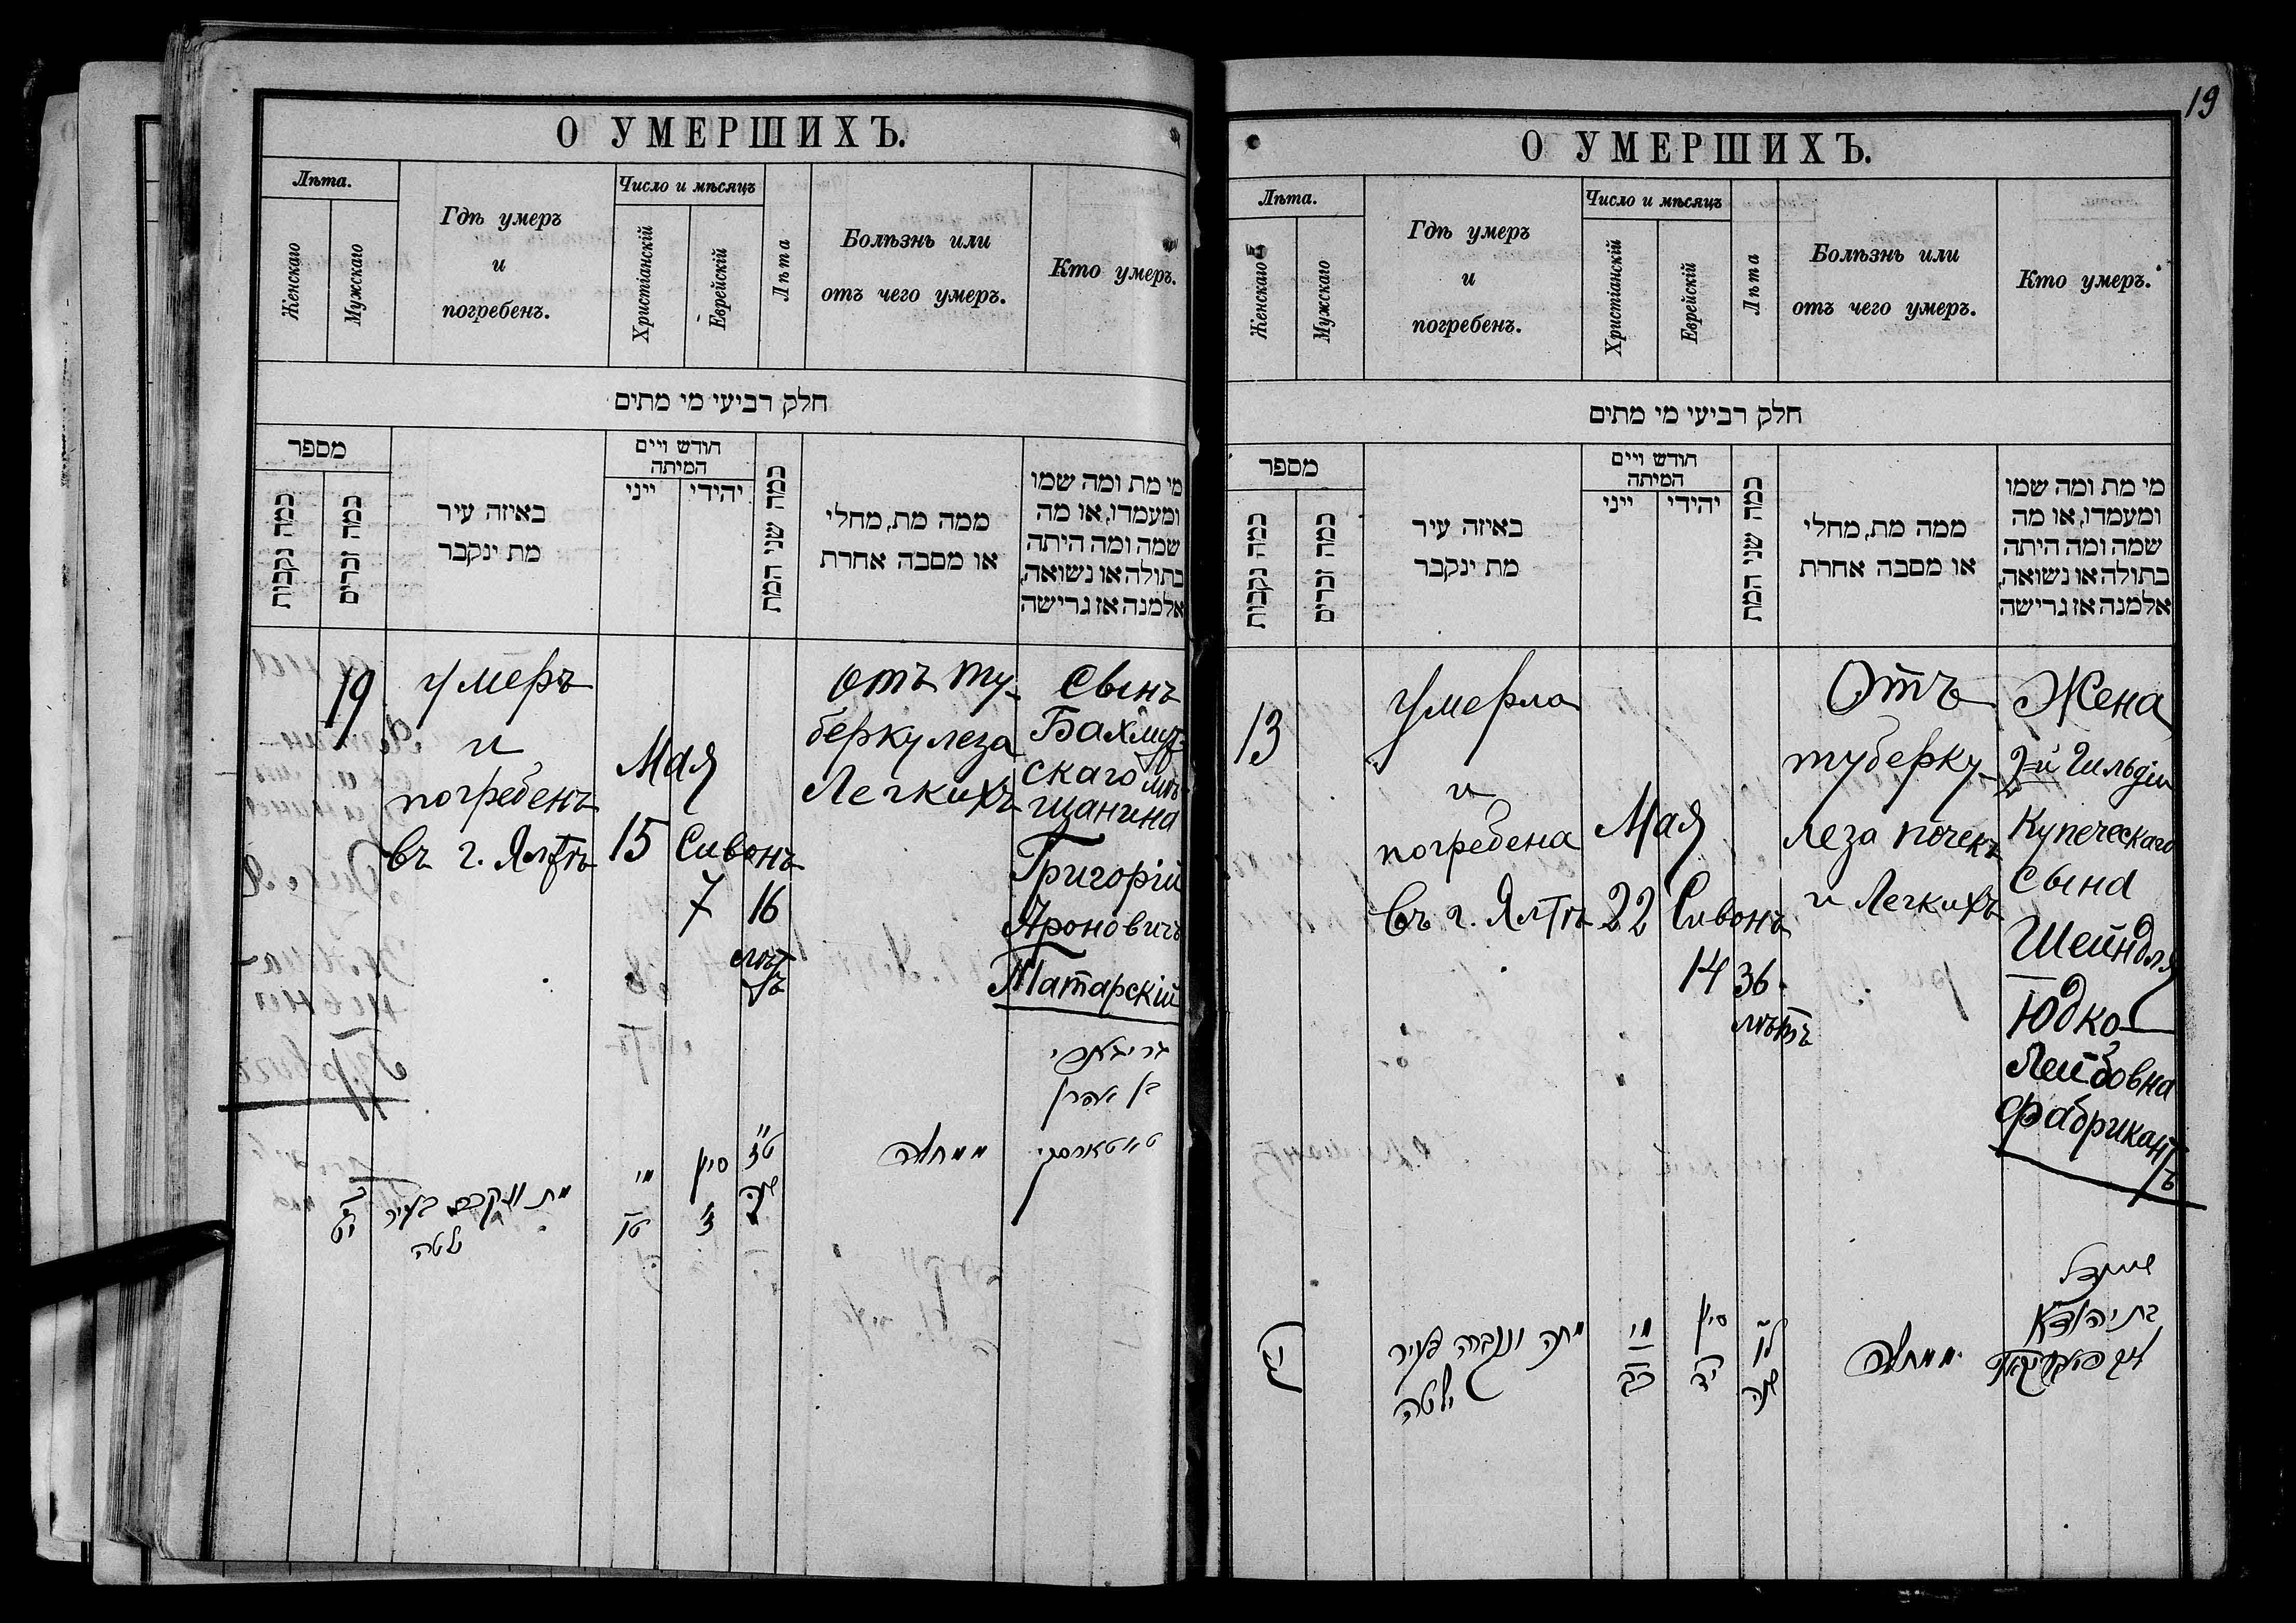 О УМЕРШИХЪ.
Лѣта.
Женскаго
Мужскаго
Гдѣ умеръ
и
погребенъ.
Число и мѣсяцъ
Христіанскій
Еврейскій
Лѣта
Болѣзнь или
отъ чего умеръ.
Кто умеръ.
חלק רביעי מי מתים
מספר
כמה נקבות
כמה זכרים
באיזה עיר
מת ינקבר
חודש ויים
המיתה
ייני
יהידי
כמה שני המת
ממה מת, מחלי
או מסבה אחרת
מי מת ומה שמו
ומעמדו, או מה
שמה ומה היתה
בתולה או נשואה,
אלמנה אז גרישה
19
умеръ
и
погребенъ
въ г. Ялтѣ
Мая
15
Сивонъ
7
16
лѣтъ
отъ ту-
беркулеза
Легкихъ
Сынъ
Бахмут-
скаго мѣ-
щанина
Григорій
Ароновичъ
Татарскій
בן אהרן
ממחלה
טז
שנה
סיון
ז
מיי
טו
מת ונקבר בעיר
ילטה
יט
19
О УМЕРШИХЪ.
Лѣта.
Женскаго
Мужскаго
Гдѣ умеръ
и
погребенъ.
Число и мѣсяцъ
Христіанскій
Еврейскій
Лѣта
Болѣзнь или
отъ чего умеръ.
Кто умеръ.
חלק רביעי מי מתים
מספר
כמה נקבות
כמה זכרים
באיזה עיר
מת ינקבר
חודש ויים
המיתה
ייני
יהידי
כמה שני המת
ממה מת, מחלי
או מסבה אחרת
מי מת ומה שמו
ומעמדו, או מה
שמה ומה היתה
בתולה או נשואה,
אלמנה אז גרישה
13
Умерла
и
погребена
въ г. Ялтѣ
Мая
22
Сивонъ
14
36
лѣтъ
Отъ
туберку-
леза почекъ
и Легкихъ
Жена
2-й Гильдіи
Купеческаго
сына
Шейндля
Юдко-
Лейбовна
Фабрикантъ
שיינדל
ממחלה
לו
שנה
סיון
יד
מיי
כב
מתה ונקברה בעיר
ילטה
יג